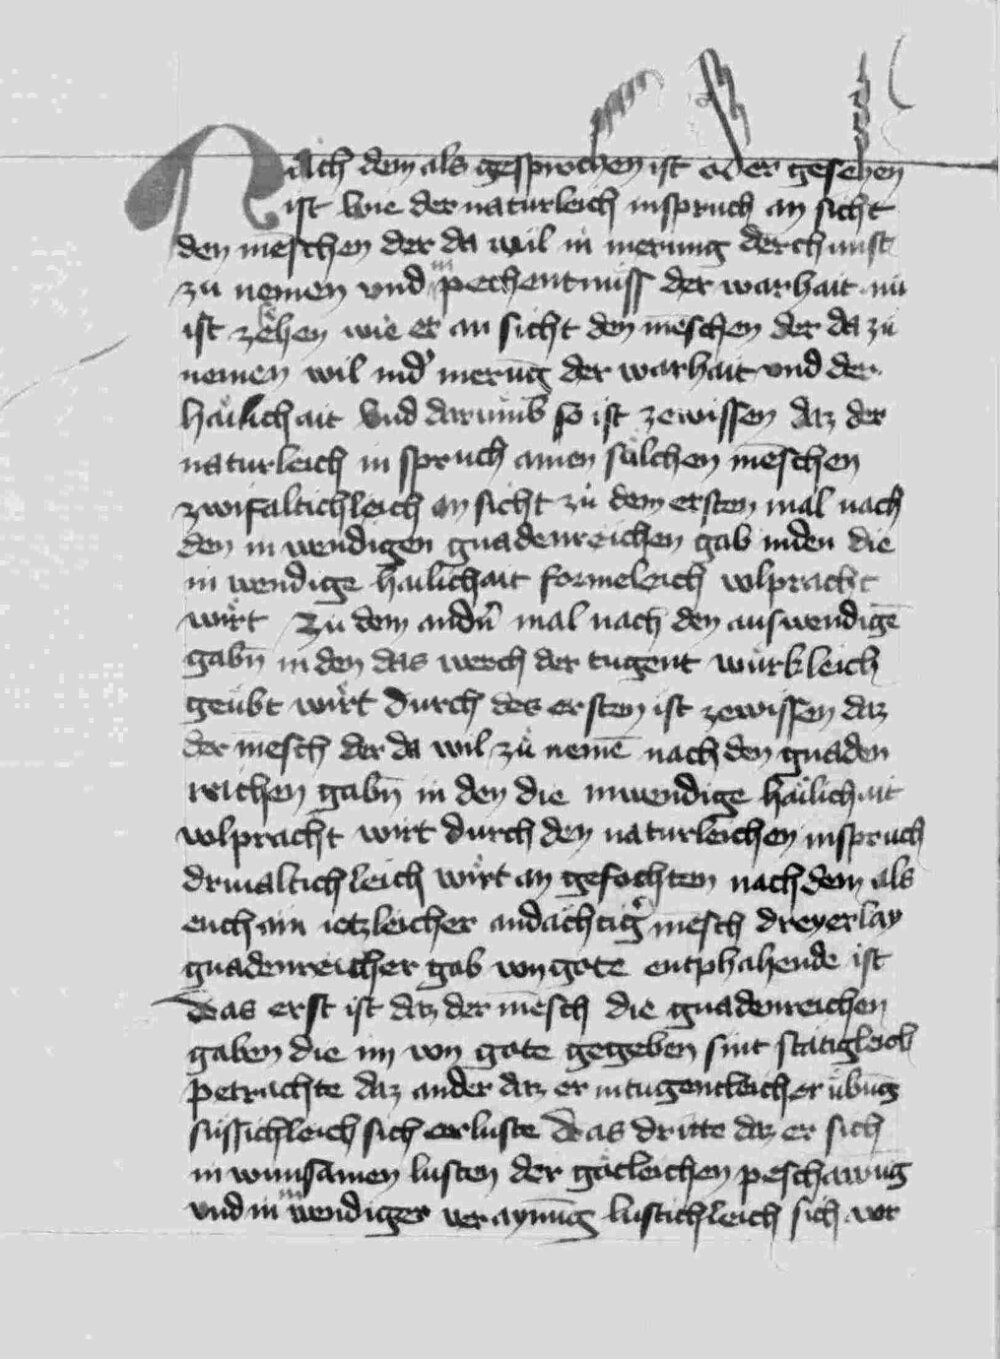 Nach dem als gesprochen ist oder gesehen
ist wie der naturleich inspruch an sicht
den mēschen der da wil in merung der chunst
zu nemen vnd in pechentnuss der warhait nu
ist zesehen wie er an sicht den mēschen der da zu
nemen wil in d' merūg der warhait vnd der
hailichait Vnd darumb so ist zewissen daz der
naturleich in spruch ainen sölchen mēschen
zwifaltichleich an sicht zu dem ersten mal nach
den in wendigen gnadenreichen gab in den die
in wendige hailichait formeleich volpracht
wirt Zu dem andn̄ mal nach den auswendigē
gabn̄ in den das werch der tugent würkleich
geübt wirt Durch des ersten ist zewissen daz
der mēsch der da wil zu nemē nach den gnaden
reichen gabn̄ in den die inwendige hailichait
volpracht wirt durch den naturleichen inspruch
drivaltichleich wirt an gefochten nach dem als
euch ain ietzleicher andächtig' mēsch dreyerlay
gnadenreicher gab von gote entphahende ist
Das erst ist daz der mēsch die gnadenreichen
gaben die im von gote gegeben sint stätigleich
petrachte daz ander daz er in tugentleicher übūg
süssichleich sich erluste Das dritte daz er sich
in wunsamen lusten der götleichen peschawūg
vnd in inwendiger veraynūg lustichleich sich vor